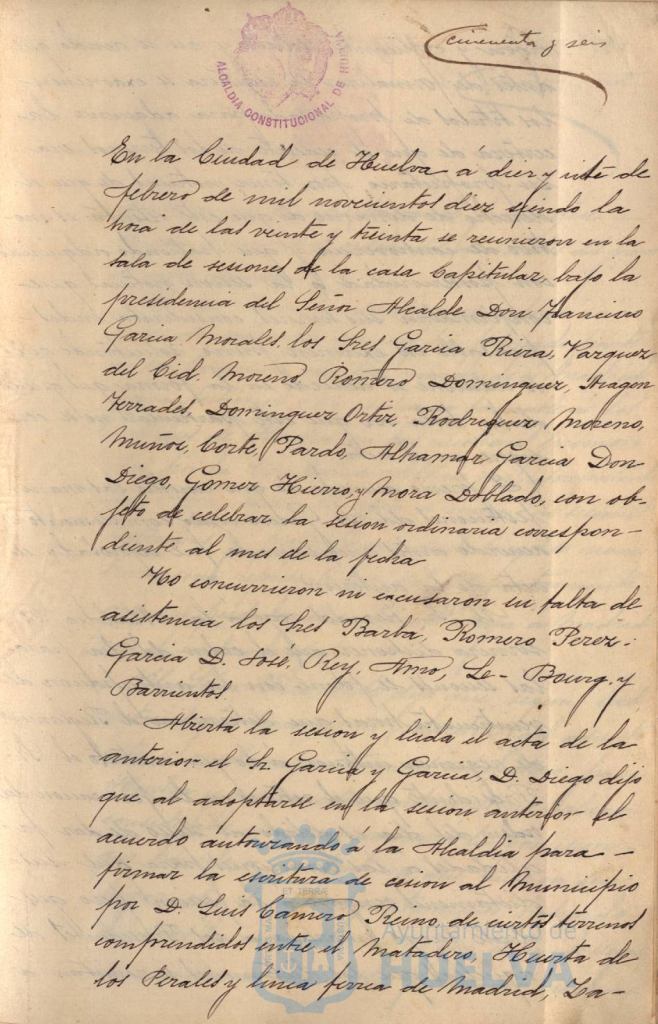 cincuenta y seis
ALCALDIA CONSTITUCIONAL DE HUELVA
En la Ciudad de Huelva á diez y siete de
febrero de mil novecientos diez siendo la
hora de las veinte y treinta se reunieron en la
sala de sesiones de la casa Capitular, bajo la
presidencia del Señor Alcalde Don Francisco
Garcia Morales, los Sres Garcia Riera, Vazquez
del Cid, Moreno, Romero Dominguez, Aragon
Terrades, Dominguez Ortiz, Rodriguez Moreno,
Muñoz, Corte, Pardo, Alhamar Garcia Don
Diego, Gomez Hierro, y Mora Doblado, con ob-
jeto de celebrar la sesion ordinaria correspon-
diente al mes de la fecha
No concurrieron ni excusaron su falta de
asistencia los Sres Barba, Romero Perez,
Garcia D. José, Rey, Amo, Le-Bourg y
Barrientos
Abierta la sesion y leida el acta de la
anterior el Sr. Garcia y Garcia, D. Diego dijo
que al adoptarse en la sesion anterior el
acuerdo autorizando á la Alcaldia para
firmar la escritura de cesion al Municipio
por D. Luis Camero Reino, de ciertos terrenos
comprendidos entre el Matadero, Huerta de
los Perales y linea ferrea de Madrid, Za-
Ayuntamiento de
HUELVA